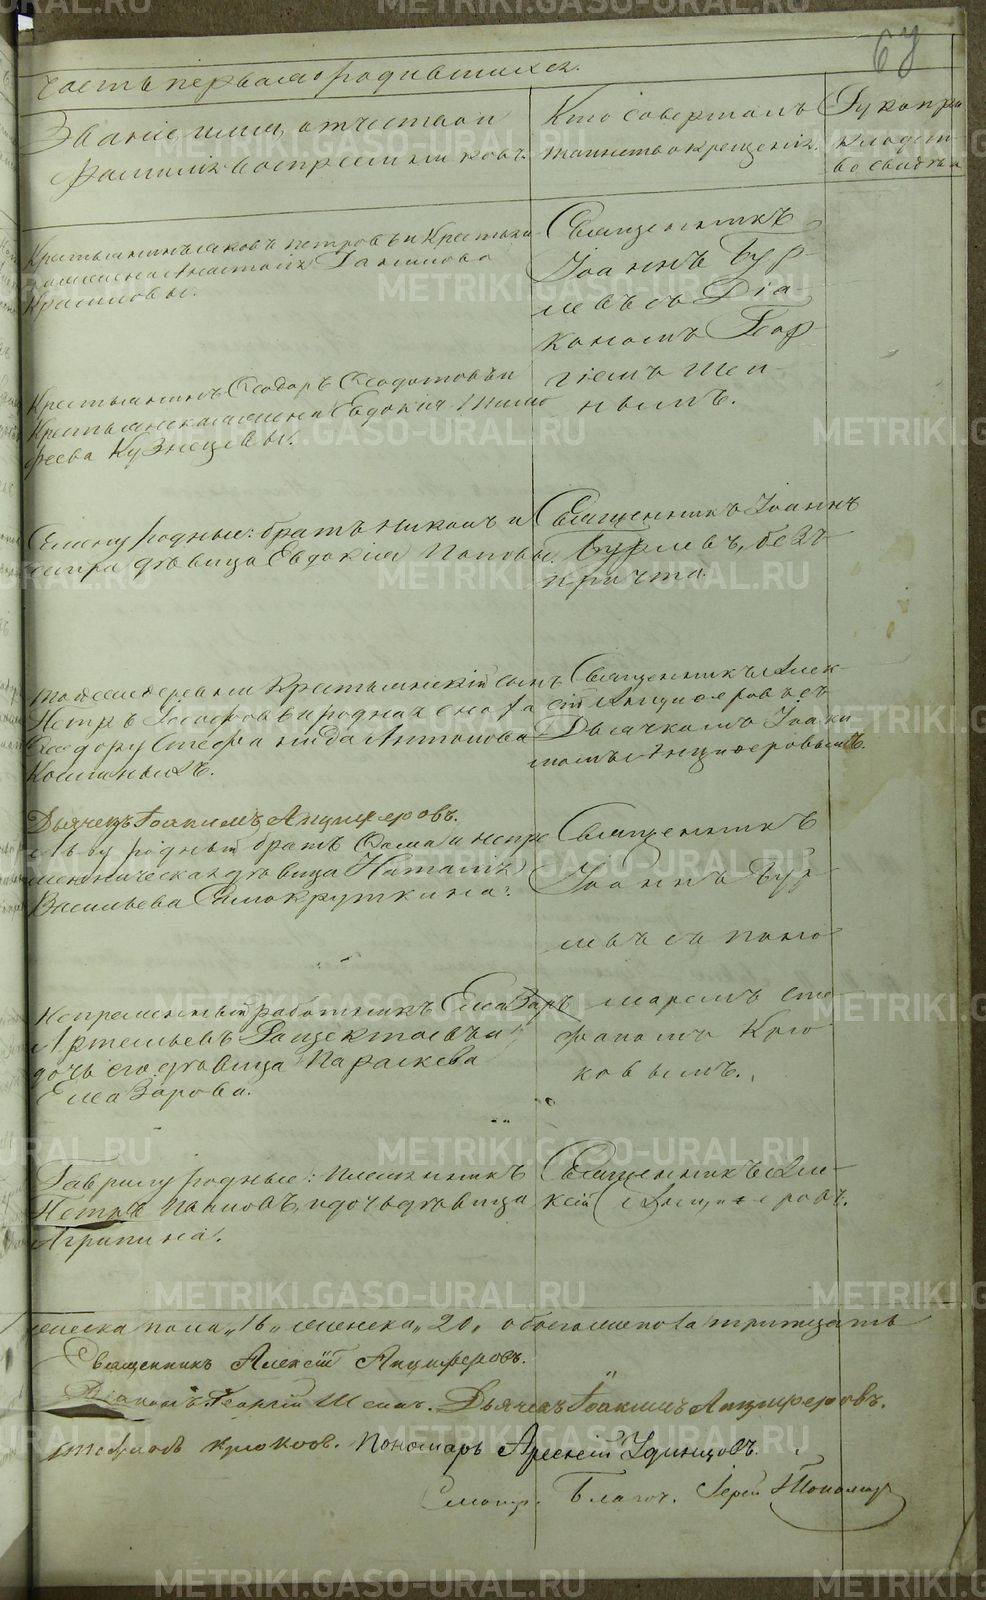 67
Часть первая о родившихся.
Званіе, имя, отчество и
фамилія воспреемниковъ.
Кто совершалъ
таинство крещенія.
Рукопри
кладст
во свидѣ
Крестьянинъ Іаковъ Петровъ и Крестьян
Анастасія Гаврилова
Крыловы.
Священникъ
Іоаннъ Бур
левъ съ Діа
кономъ Геор
гіемъ Шеи
нымъ.
Крестьянинъ Ѳеодоръ Ѳеодотовъ и
Крестьянская жена Евдокія Тимо
феева Кузнецовы.
Семену родные: братъ Николъ и
сестра дѣвица Евдокія Поповы.
Священникъ Іоаннъ
Бурлевъ, безъ
причта.
той же деревни Крестьянскій сынъ
Петръ Ѳеодоровъ и родная сноха
Ѳеодору Стефанида Антонова
Коминыхъ.
Священникъ Алек
сій Анциферовъ съ
Дьячкомъ Іоаки
момъ Анциферовымъ.
Дьячекъ Іоакимъ Анциферовъ.
Льву родный братъ Ѳома и непре
менническая дѣвица Наталія
Васильева Самокруткина.
Священникъ
Іоаннъ Бур
левъ съ поно
маремъ Сте
фаномъ Крю
ковымъ.
Непременный работникъ Елеазаръ
Артемьевъ и
дочь его дѣвица Параскева
Елеазарова.
Гаврилу родные: племянникъ
Петръ Поповъ, и дочь дѣвица
Агрипина.
Священникъ Але
ксій Анциферовъ.
мужеска пола „16„ женска „20„ обоего пола тритцать
Священникъ Алексій Анциферовъ.
Діаконъ Георгій Шеинъ. Дьячекъ Іоакимъ Анциферовъ.
Стефанъ Крюковъ. Пономарь Арсеній Удинцовъ.
Смотр. Благоч. Іерей Топоминъ
METRIKI.GASO-URAL.RU